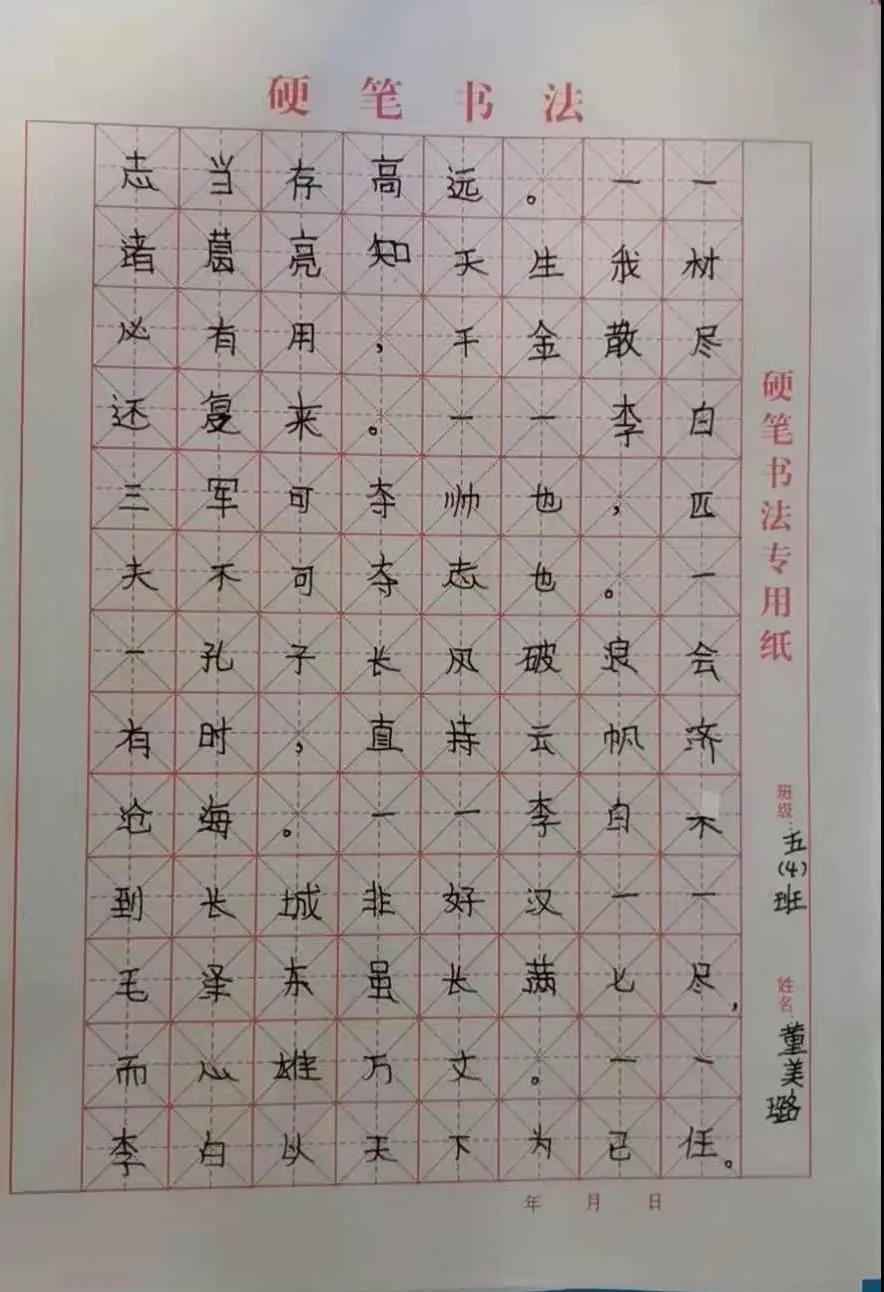 硬笔书法
志当存高远。一一
诸葛亮知天生我材
必有用，千金散尽
还复来。一一李白
三军可夺帅也，匹
夫不可夺志也。一
一孔子长风破浪会
有时，直持云帆济
沧海。一一李白不
到长城非好汉一一
毛泽东虽长满七尽，
而心雄万丈。一一
李白以天下为己任。
硬笔书法专用纸
班级：五(4)班
姓名：董美璐
年 月 日